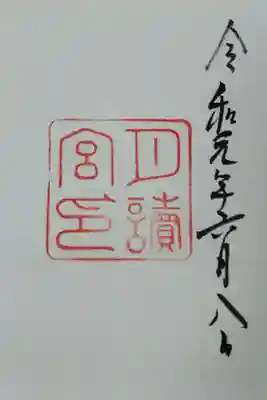 令和元年六月八日
月讀
宮印